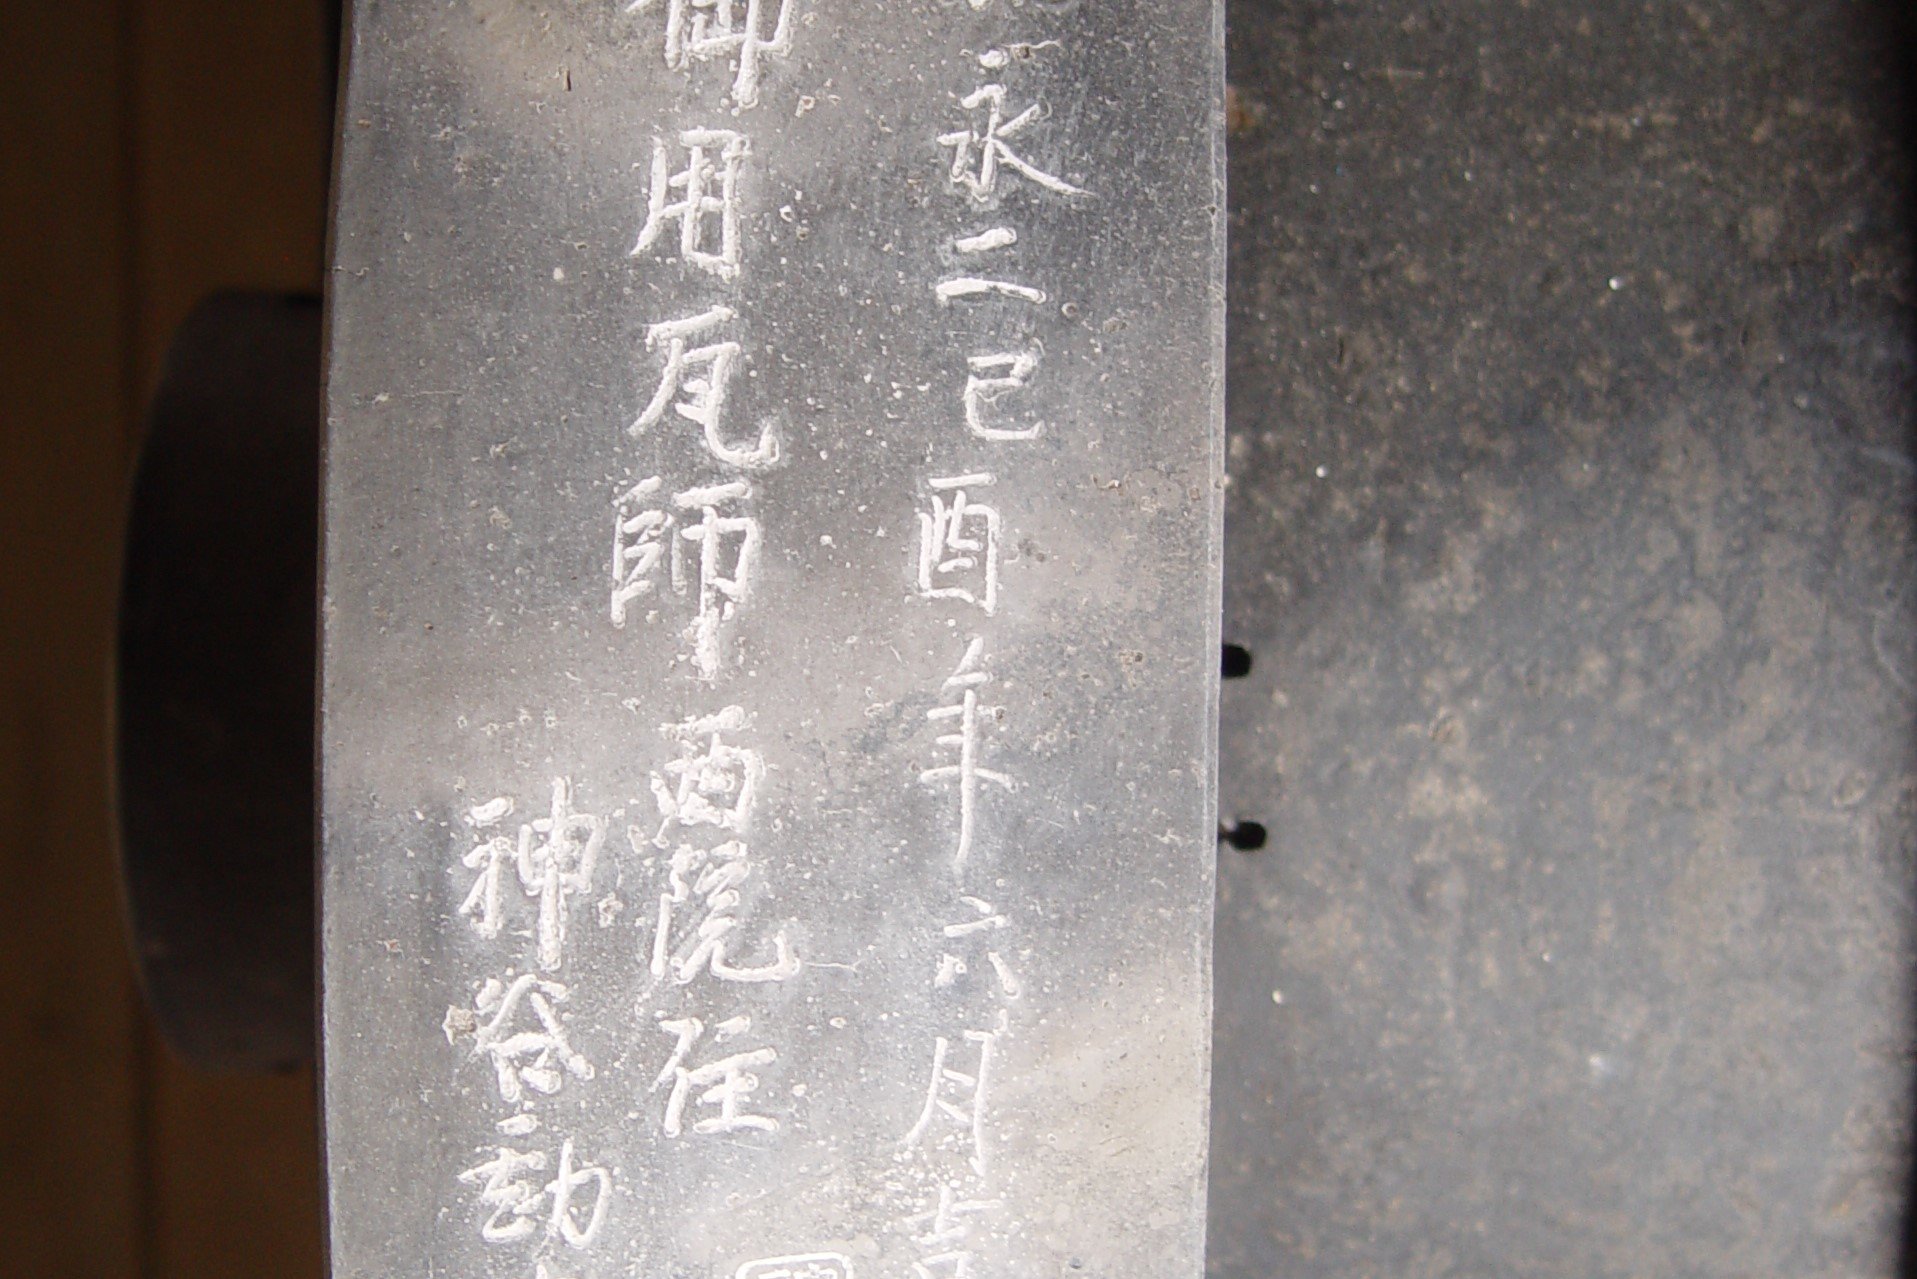 永二己酉年六月吉
御用瓦師 西院住
神谷